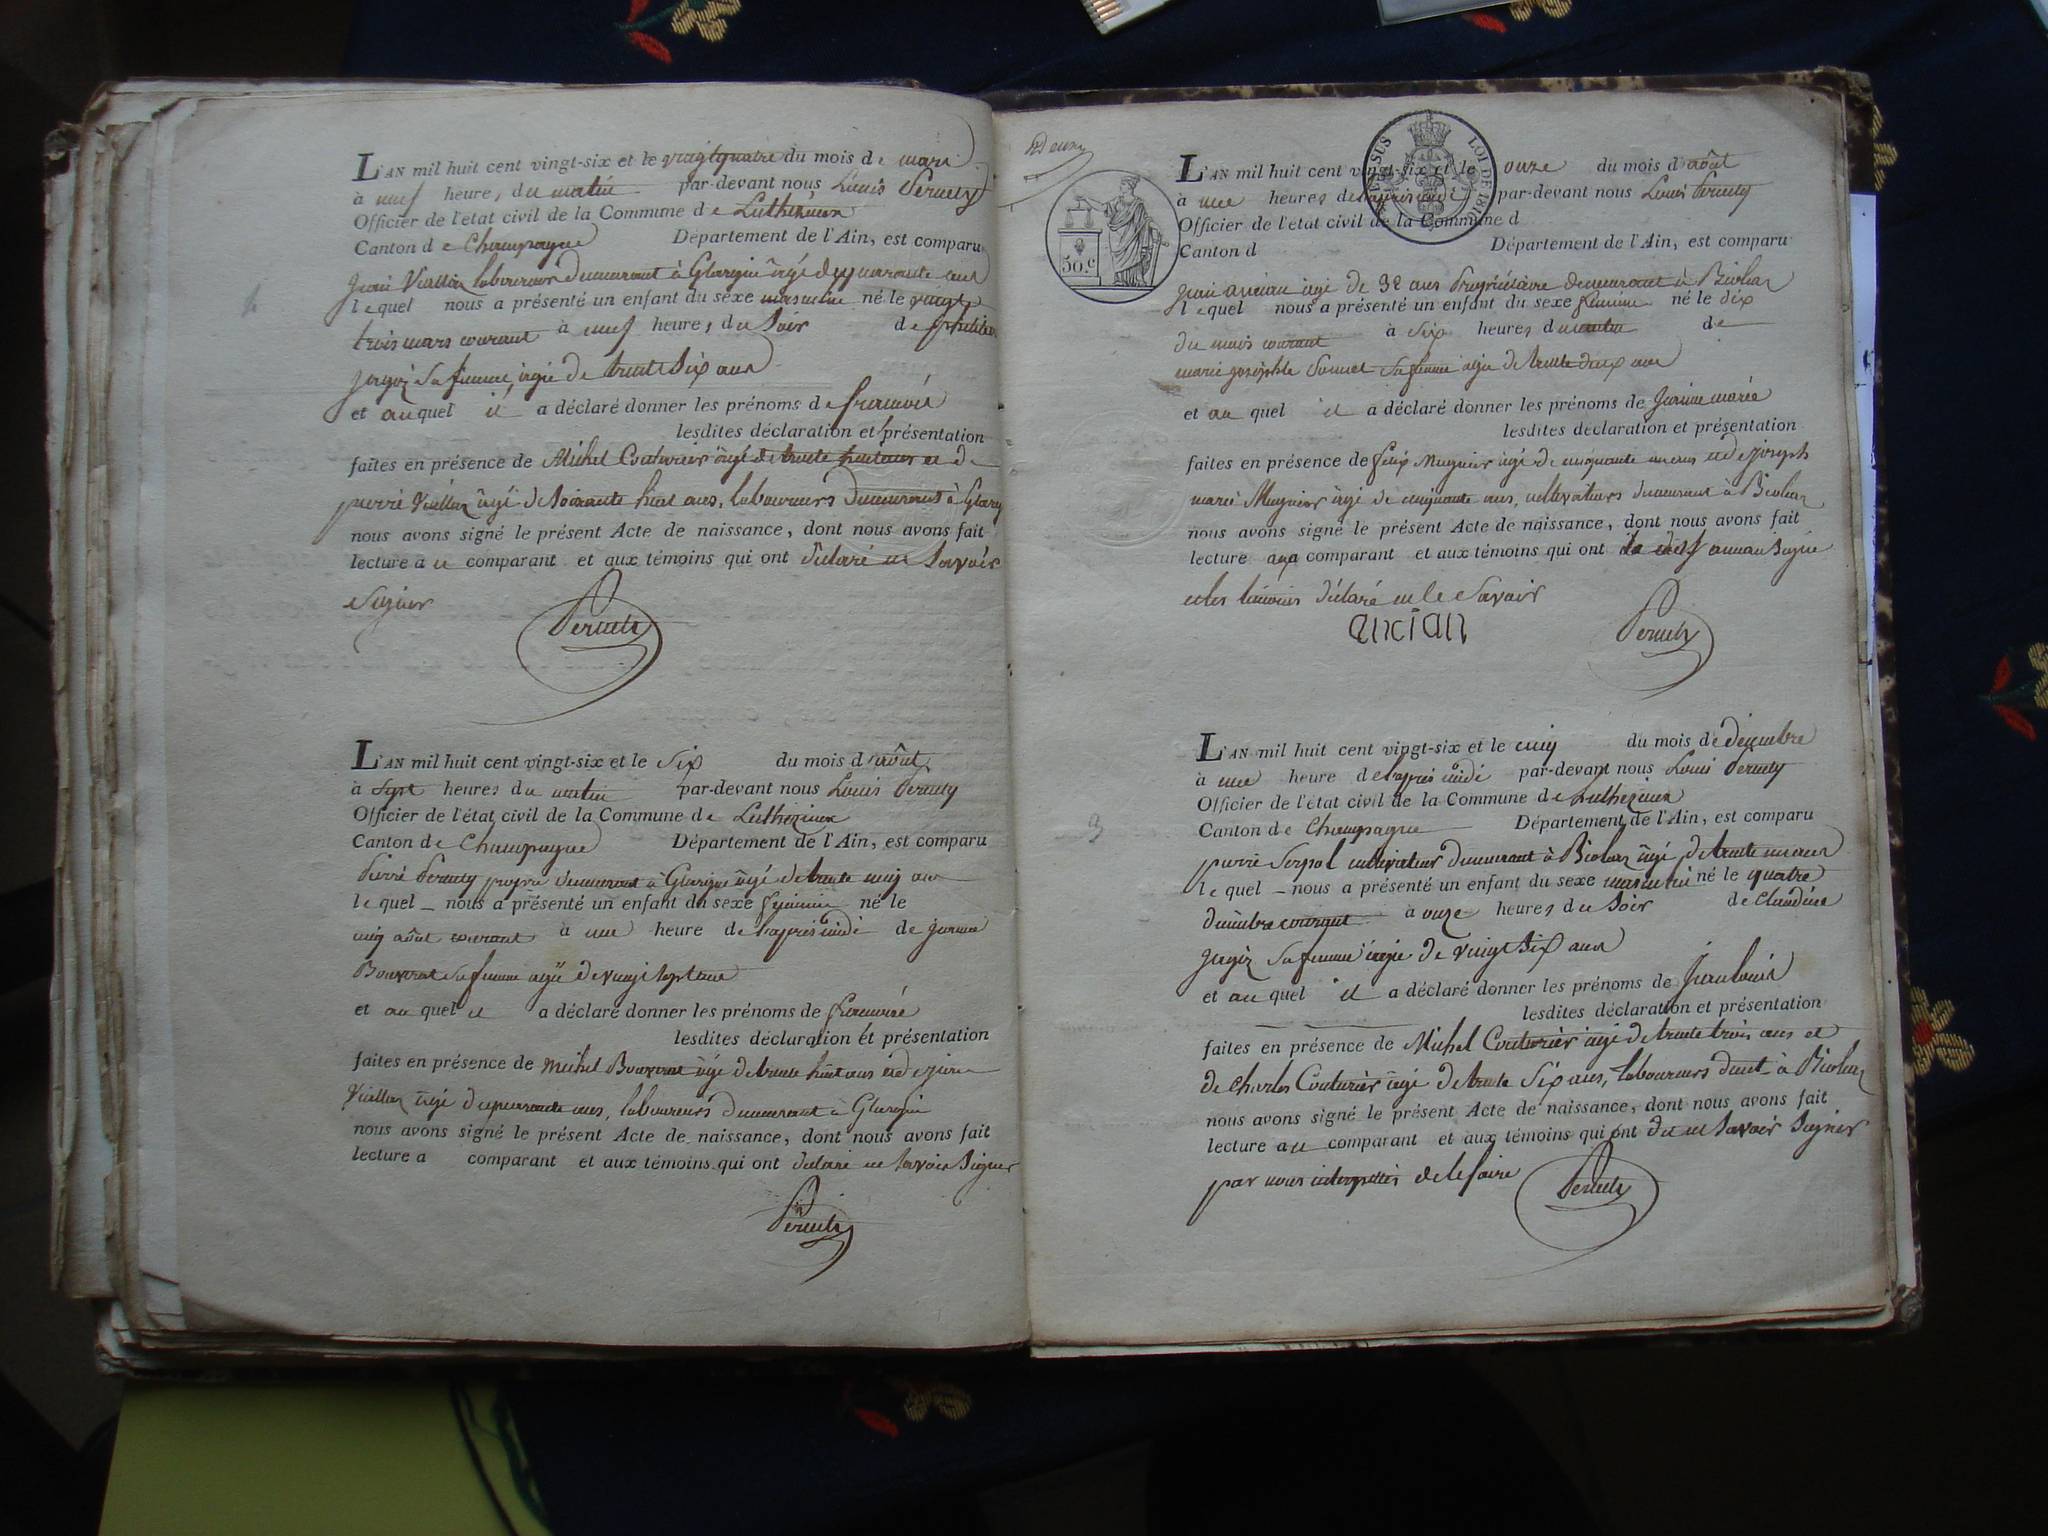 L'AN mil huit cent vingt-six et le vingtquatre du mois de mars
à neuf heures du matin par-devant nous Louis Peruety
Officier de l'état civil de la Commune de Luthezieux
Canton de Champagne Département de l'Ain, est comparu
Jean Viallon laboureur demeurant à Glargin âgé de quarante ans
lequel nous a présenté un enfant du sexe masculin né le vingt
trois mars courant à neuf heures du Soir de
Sa femme, agée de trente Six ans
et auquel il a déclaré donner les prénoms de françois
lesdites déclaration et présentation
faites en présence de Michel Couturier âgé de trente huit ans et de
pierre Viallon âgé de Soixante huit ans, laboureurs demeurant à Glarg
nous avons signé le présent Acte de naissance, dont nous avons fait
lecture au comparant et aux témoins qui ont déclaré ne Savoir
Signer
Peruety
L'AN mil huit cent vingt-six et le Six du mois d'août
à Sept heures du matin par-devant nous Louis Peruety
Officier de l'état civil de la Commune de Luthezieux
Canton de Champagne Département de l'Ain, est comparu
Pierre Peruety propre demeurant à Glargin âgé de trente cinq ans
lequel nous a présenté un enfant du sexe féminin né le
cinq août courant à une heure de l'après midi de jeanne
Bouvrat sa femme agée de vingt Sept ans
et au quel il a déclaré donner les prénoms de
lesdites déclaration et présentation
faites en présence de Michel Bouvrat âgé de trente huit ans et de jean
Viallon âgé de quarante ans, laboureurs demeurant à Glargin
nous avons signé le présent Acte de naissance, dont nous avons fait
lecture a comparant et aux témoins qui ont déclaré ne Savoir Signer
Peruety
50.c
LOI DE 181
L'AN mil huit cent vingt-six et le onze du mois d'août
à une heures de l'après midi par-devant nous Louis Peruety
Officier de l'état civil de la Commune d
Canton d Département de l'Ain, est comparu
Jean ancian agé de 32 ans Propriétaire demeurant à Biolaz
lequel nous a présenté un enfant du sexe féminin né le dix
du mois courant à Six heures du matin de
marie josephte Sa femme agée de trente deux ans
et au quel il a déclaré donner les prénoms de Jeanne marie
lesdites déclaration et présentation
faites en présence de felix Mugnier âgé de cinquante un ans et de joseph
marie Mugnier âgé de cinquante ans, cultivateurs demeurant à Biolaz
nous avons signé le présent Acte de naissance, dont nous avons fait
lecture aux comparant et aux témoins qui ont ancian Signé
et les témoins déclaré ne le Savoir
ancian
Peruety
3
L'AN mil huit cent vingt-six et le cinq du mois de décembre
à une heure de l'après midi par-devant nous Louis Peruety
Officier de l'état civil de la Commune de Luthezieux
Canton de Champagne Département de l'Ain, est comparu
pierre Serpol cultivateur demeurant à Biolaz âgé de trente un ans
lequel nous a présenté un enfant du sexe masculin né le quatre
décembre courant à onze heures du Soir de Claudine
Sa femme âgée de vingt Six ans
et au quel il a déclaré donner les prénoms de Jean louis
lesdites déclaration et présentation
faites en présence de Michel Couturier âgé de trente trois ans et
de Charles Couturier âgé de trente Six ans, laboureurs dmt à Biolaz
nous avons signé le présent Acte de naissance, dont nous avons fait
lecture au comparant et aux témoins qui ont dit ne Savoir Signer
par nous interpellés de le faire
Peruety